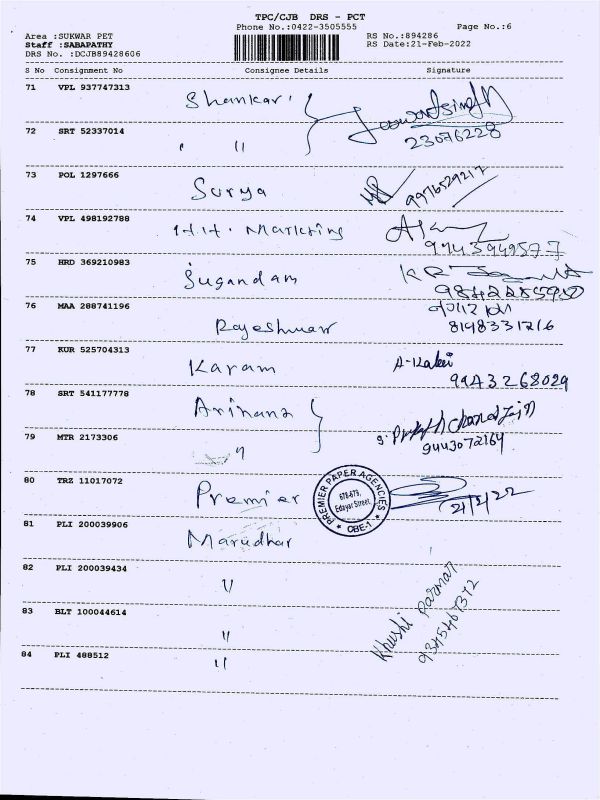 TPC/CJB DRS - PCT
Phone No.:0422-3505555
Page No.:6
Area :SUKWAR PET
Staff :SABAPATHY
DRS No. :DCJB89428606
RS No.:894286
RS Date:21-Feb-2022
S No Consignment No Consignee Details Signature
71 VPL 937747313 Shankar
72 SRT 52337014 " 23076228
73 POL 1297666 Surya 9976529217
74 VPL 498192788 H.H. Marketing 9943949577
75 HRD 369210983 Sugandam
9842285950
76 MAA 288741196 Rajeshwari 8198331216
77 KUR 525704313 Karam
9943268029
78 SRT 541177778 Arihant
79 MTR 2173306 " 9443072164
80 TRZ 11017072 Premier PREMIER PAPER AGENCIES 678-679, Edayar Street, CBE-1 21/2/22
81 PLI 200039906 Marudhar
82 PLI 200039434 "
83 BLT 100044614 " Khushi Parmar 9345467372
84 PLI 488512 "